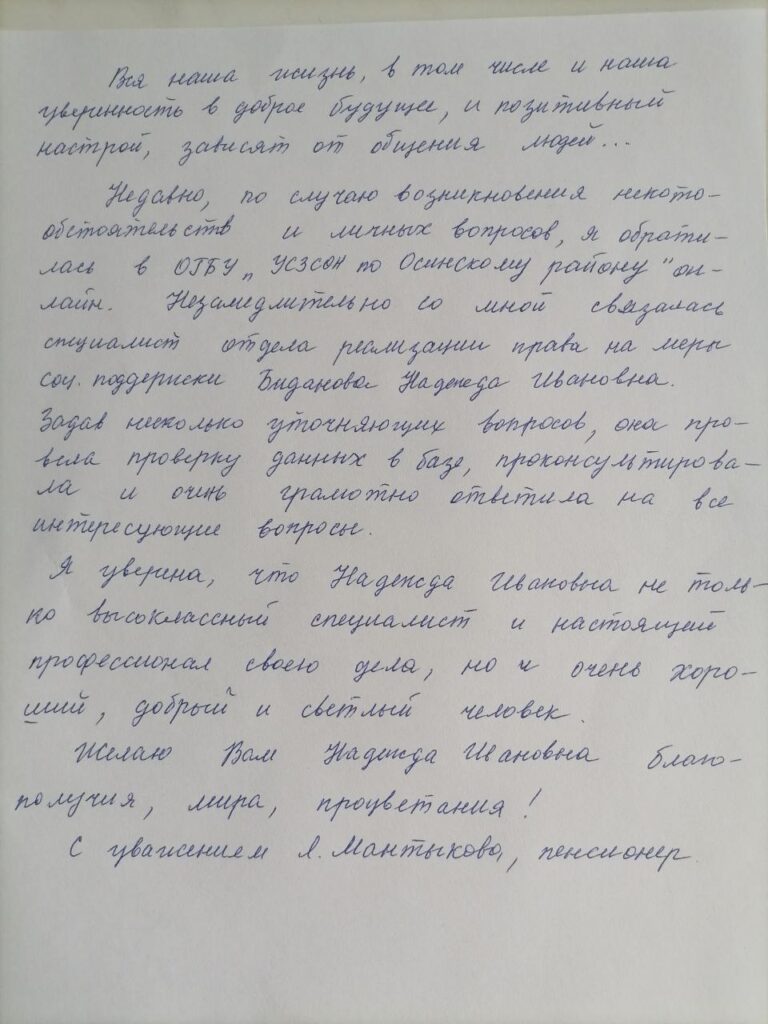 Вся наша жизнь, в том числе и наша
уверенность в доброе будущее, и позитивный
настрой, зависят от общения людей...
Недавно, по случаю возникновения некото-
обстоятельств и личных вопросов, я обрати-
лась в ОГБУ „УСЗСОН по Осинскому району" он-
лайн. Незамедлительно со мной связалась
специалист отдела реализации права на меры
соц. поддержки Биданова Надежда Ивановна.
Задав несколько уточняющих вопросов, она про-
вела проверку данных в базе, проконсультирова-
ла и очень грамотно ответила на все
интересующие вопросы.
Я уверена, что Надежда Ивановна не толь-
ко высоклассный специалист и настоящий
профессионал своего дела, но и очень хоро-
ший, добрый и светлый человек.
Желаю Вам Надежда Ивановна благо-
получия, мира, процветания!
С уважением Л. Мантыкова, пенсионер.